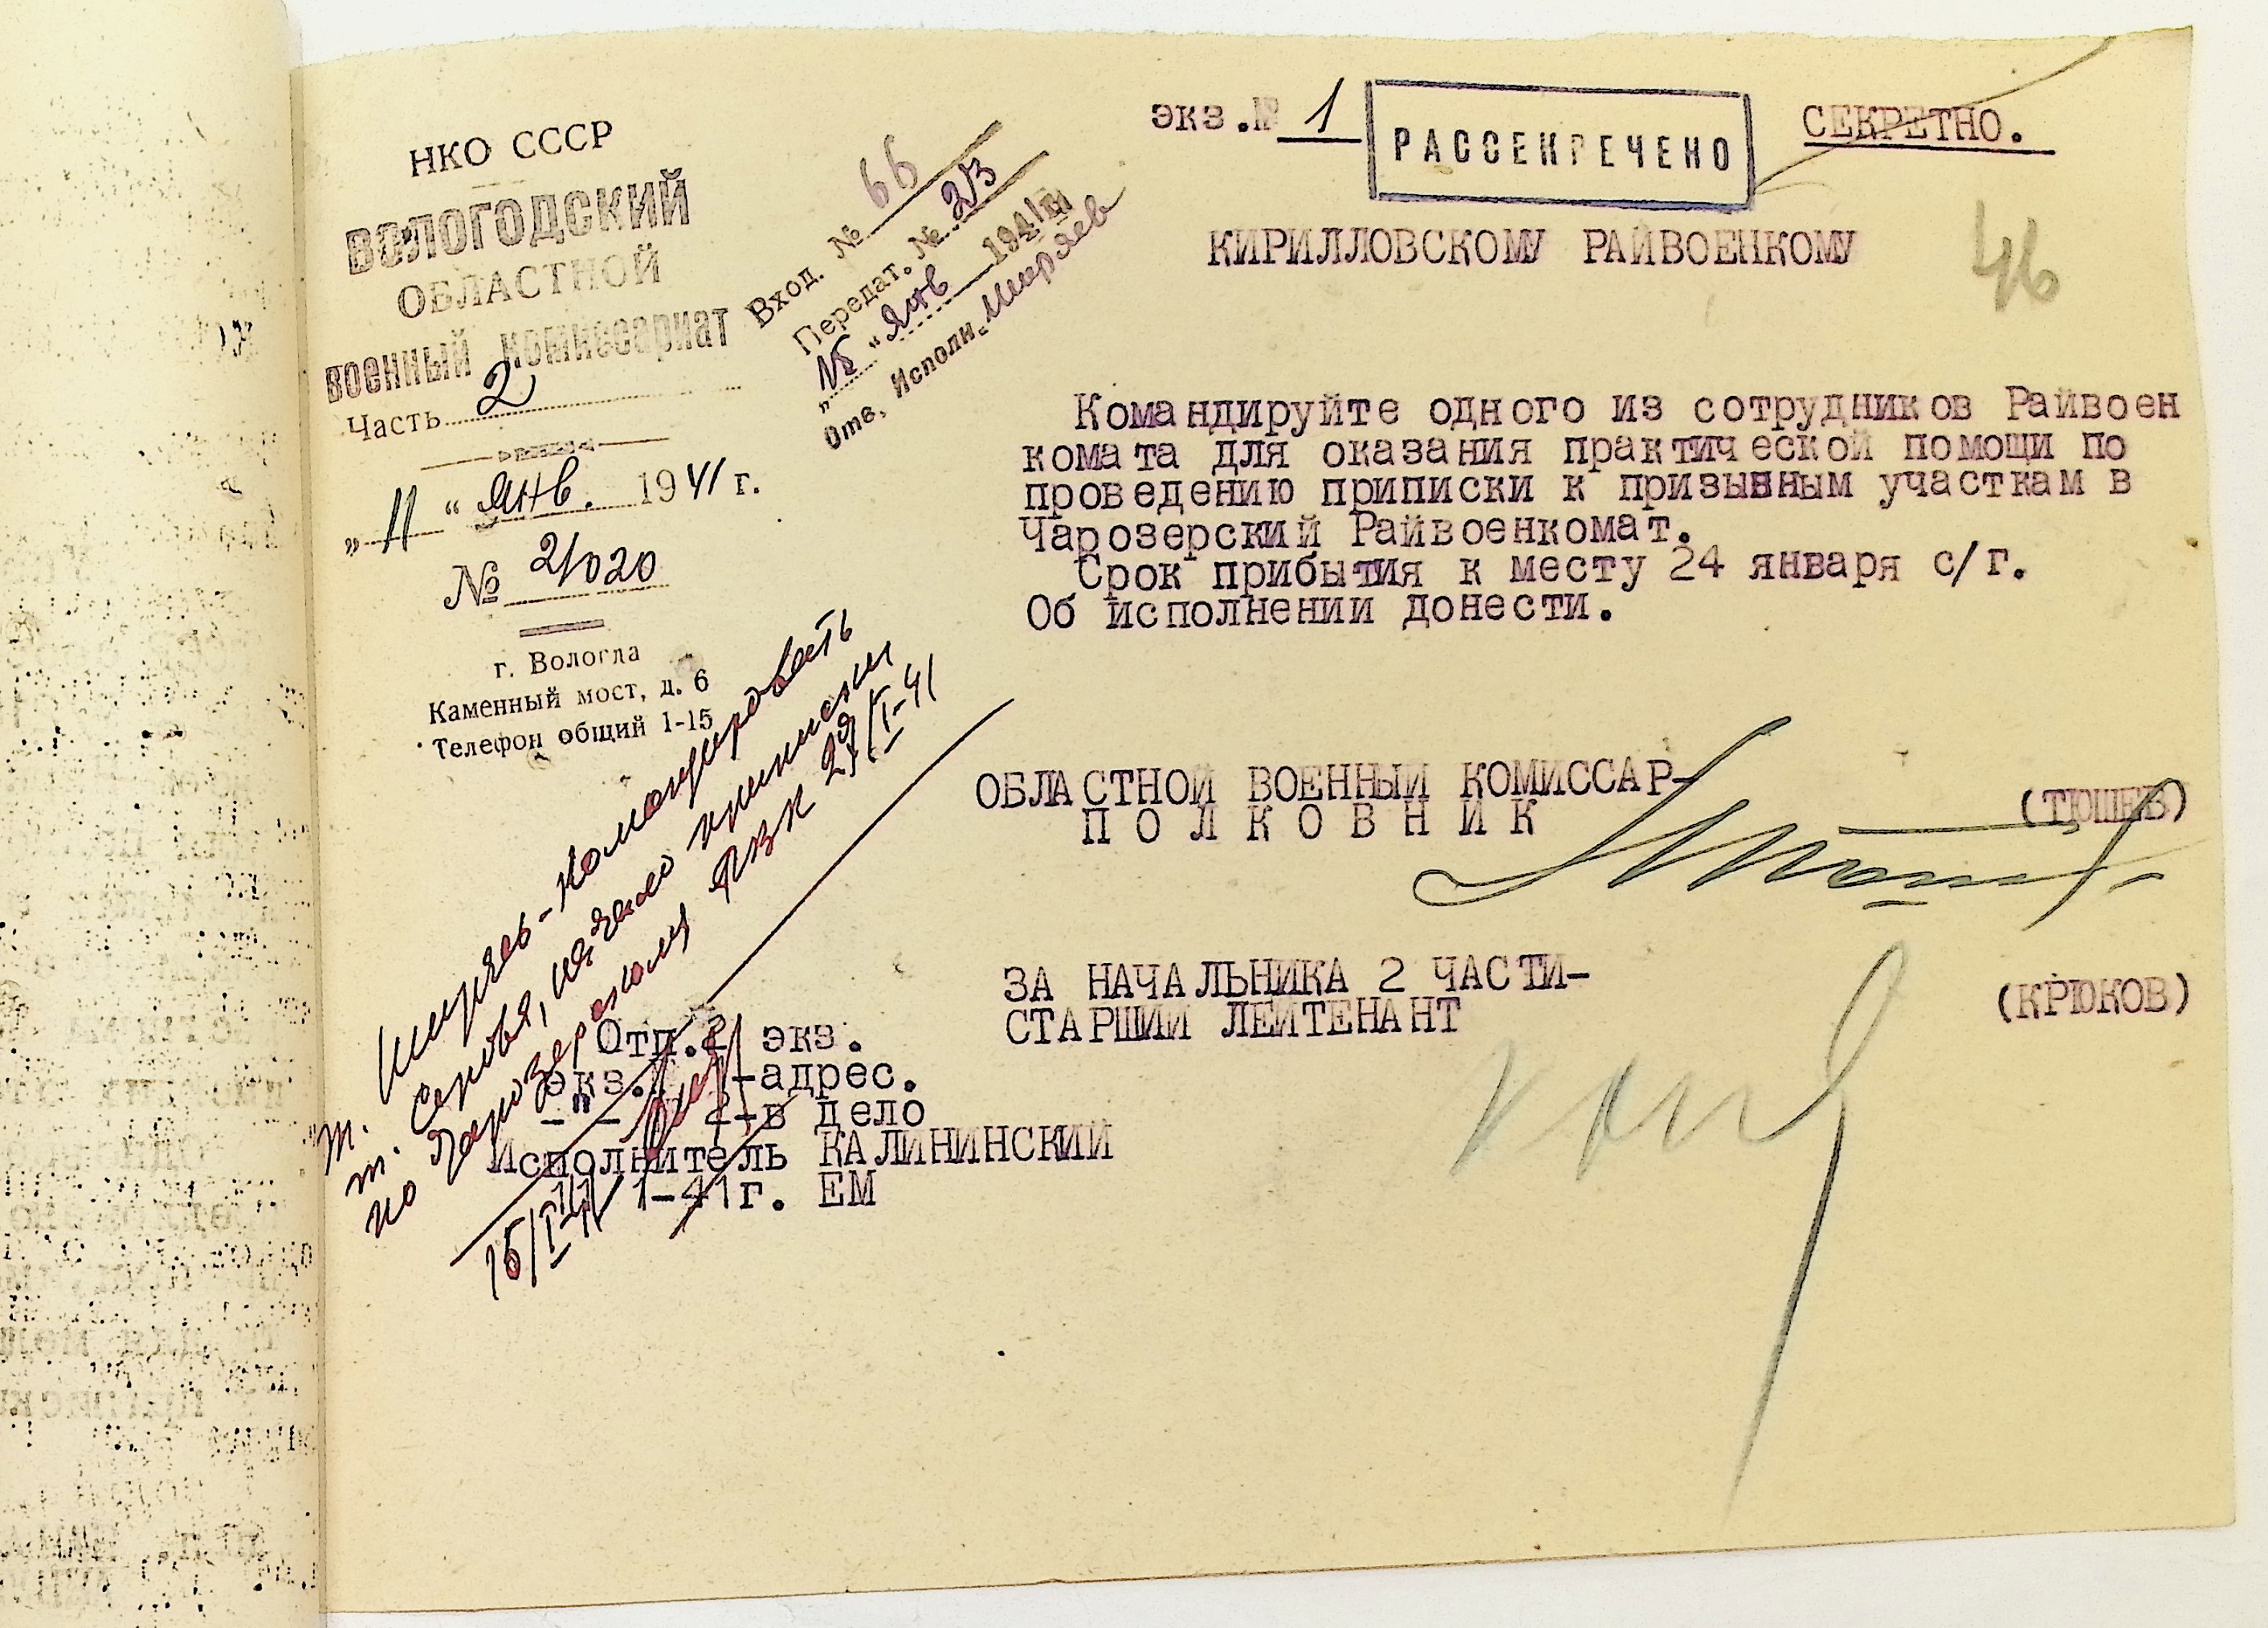 НКО СССР
ВОЛОГОДСКИЙ
ОБЛАСТНОЙ
военный комиссариат
Часть 2
„11“ Янв. 1941 г.
№ 2/020
г. Вологда
Каменный мост, д. 6
Телефон общий 1-15
Вход. № 66
Передат. № 2/3
„15“ Янв 1941 г.
Отв. Исполн. Ширяев
экз.№ 1
РАССЕКРЕЧЕНО
СЕКРЕТНО.
КИРИЛЛОВСКОМУ РАЙВОЕНКОМУ
46
Командируйте одного из сотрудников Райвоен
комата для оказания практической помощи по
проведению приписки к призывным участкам в
Чарозерский Райвоенкомат.
Срок прибытия к месту 24 января с/г.
Об исполнении донести.
ОБЛАСТНОЙ ВОЕННЫЙ КОМИССАР-
ПОЛКОВНИК (ТЮШЕВ)
ЗА НАЧАЛЬНИКА 2 ЧАСТИ-
СТАРШИЙ ЛЕЙТЕНАНТ (КРЮКОВ)
т. Ширяев - командировать
т. Серова, начало приписки
по Чарозерскому РВК 23/I-41
15/I-41
Отп.2 экз.
экз. 1-адрес.
-"- 2-в дело
Исполнитель КАЛИНИНСКИЙ
11/1-41г. ЕМ